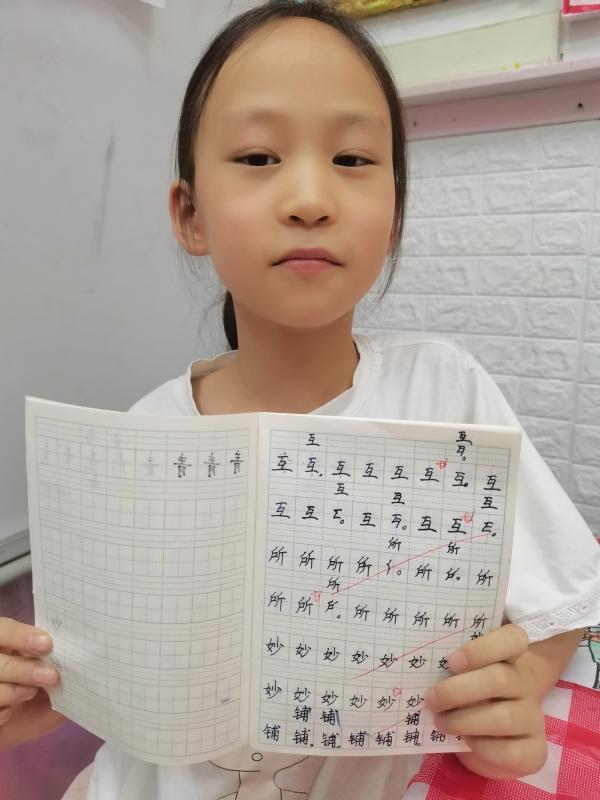 青 青 青
互 互
互。
互 互。 互 互 互 互 互。 互
互 互 互
互 互 互 互。 互 互
所 所
所 所 所 所 所 所
所
所 所 所 所 所 所 所
妙 妙 妙 妙 妙 妙
妙 妙 妙 妙 妙 妙
铺 铺 铺
铺 铺。 铺。 铺 铺 铺。 铺